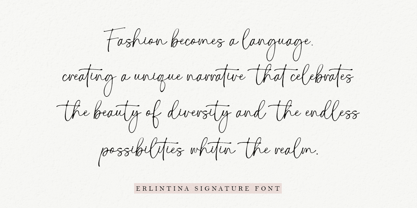 Fashion becomes a language.
creating a unique narrative that celebrates
the beauty of diversity and the endless
possibilities whitin the realm.
ERLINTINA SIGNATURE FONT